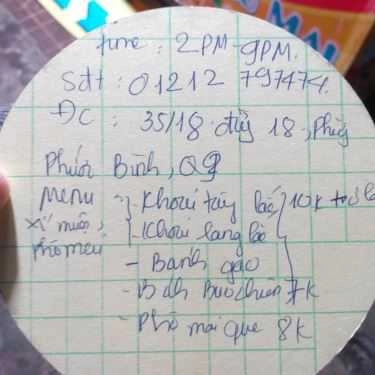 time : 2PM-9PM.
Sđt : 01212 797474.
Đc : 35/18 đường 18, Phường
Phước Bình, Q9
Menu - Khoai tây lắc 10k
xí muội, - Khoai lang lắc
phô mai - Bánh gạo
- Bánh Bao chiên 7k
- Phô mai que 8k